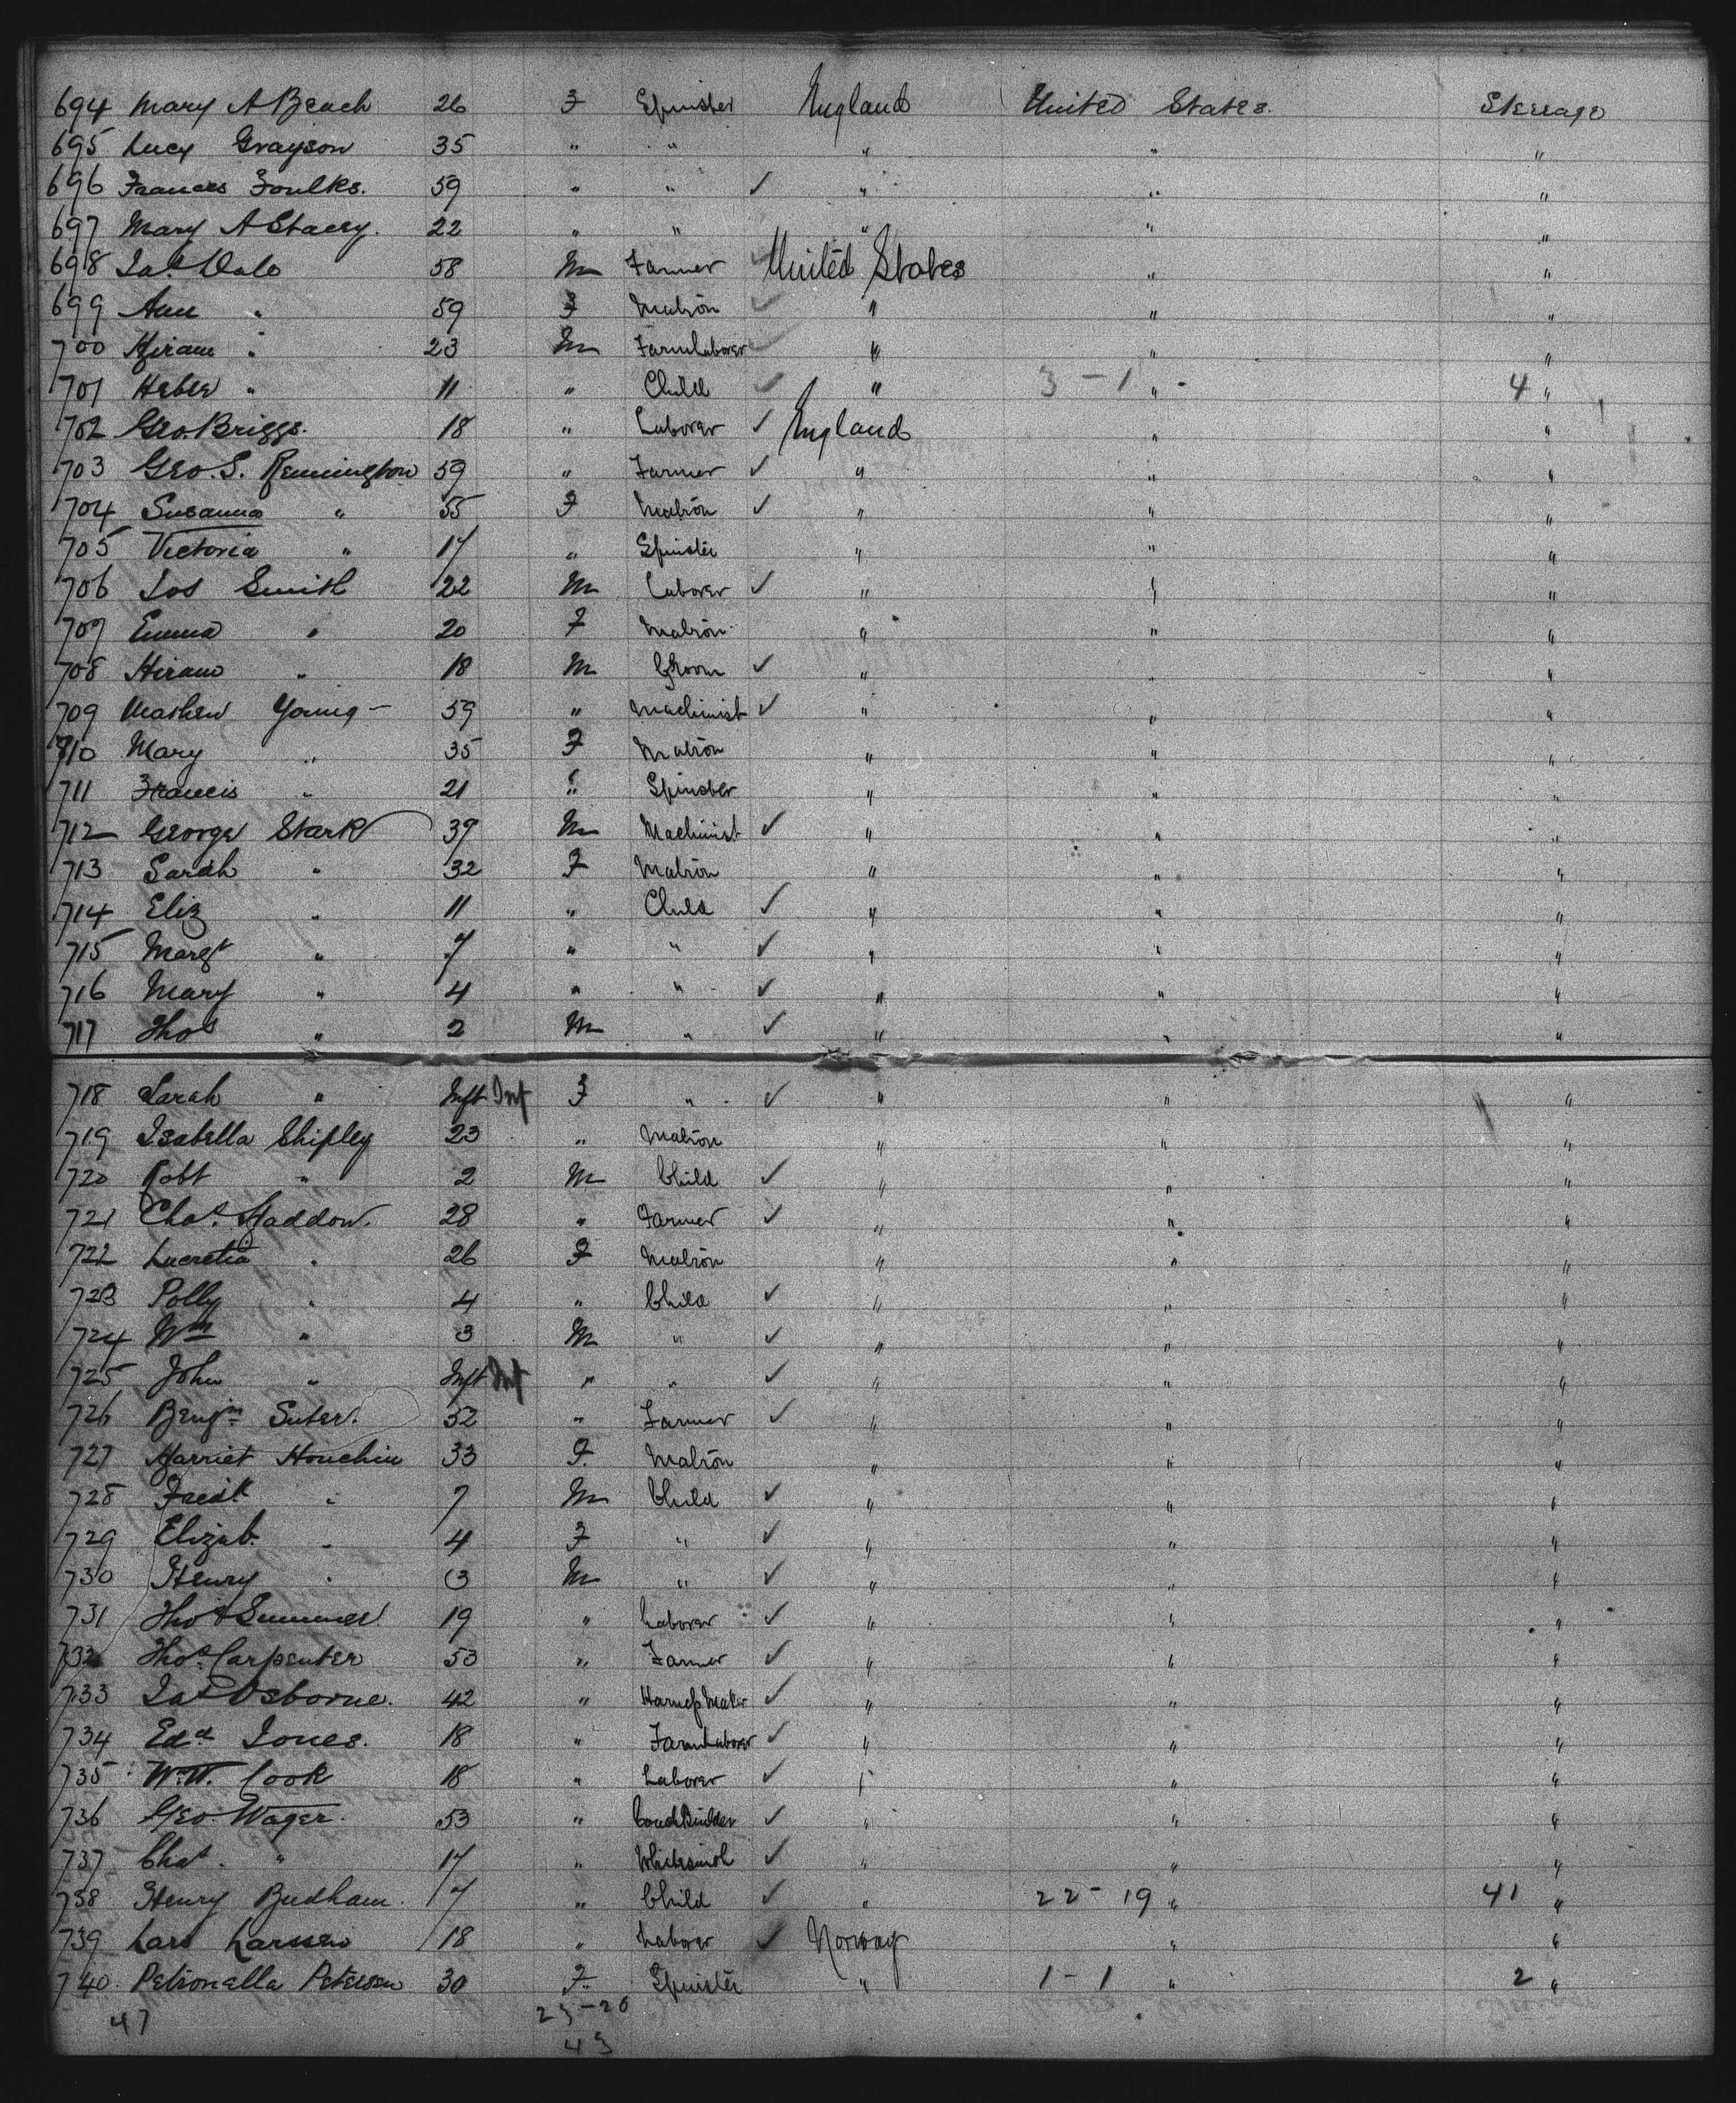 694 Mary A Beach 26 F Spinster England United States. Steerage
695 Lucy Grayson 35 " " " " "
696 Frances Foulks. 59 " " ✓ " " "
697 Mary A Stacey. 22 " " " " "
698 Jas Dale 58 M Farmer ✓ United States " "
699 Ann " 59 F Matron ✓ " " "
700 Hiram " 23 M Farm Laborer ✓ " " "
701 Heber " 11 " Child ✓ " 3 - 1 " 4 "
702 Geo. Briggs. 18 " Laborer ✓ England " "
703 Geo. S. Remington 59 " Farmer ✓ " " "
704 Susanna " 55 F Matron ✓ " " "
705 Victoria " 17 " Spinster " " "
706 Jos Smith 22 M Laborer ✓ " " "
707 Emma " 20 F Matron " " "
708 Hiram " 18 M Groom ✓ " " "
709 Mathew Young - 59 " Machinist ✓ " " "
710 Mary " 35 F Matron " " "
711 Francis " 21 " Spinster " " "
712 George Stark 39 M Machinist ✓ " " "
713 Sarah " 32 F Matron " " "
714 Eliz " 11 " Child ✓ " " "
715 Margt " 7 " " ✓ " " "
716 Mary " 4 " " ✓ " " "
717 Thos " 2 M " ✓ " " "
718 Sarah " Inft Inf F " ✓ " " "
719 Isabella Shipley 23 " Matron " " "
720 Robt " 2 M Child ✓ " " "
721 Chas. Haddow. 28 " Farmer ✓ " " "
722 Lucretia " 26 F Matron " " "
723 Polly " 4 " Child ✓ " " "
724 Wm " 3 M " ✓ " " "
725 John " Inft Inf " " ✓ " " "
726 Benjn Suter. 52 " Farmer ✓ " " "
727 Harriet Houchin 33 F. Matron " " "
728 Fredk " 7 M Child ✓ " " "
729 Elizab. " 4 F " ✓ " " "
730 Henry " 3 M " ✓ " " "
731 Thos Summer 19 " Laborer ✓ " " "
732 Thos. Carpenter 53 " Farmer ✓ " " "
733 Jas Osborne. 42 " Harness Maker ✓ " " "
734 Edd Jones. 18 " Farm Laborer ✓ " " "
735 Cook 18 " Laborer ✓ " " "
736 Geo. Wager. 53 " Coach Builder ✓ " " "
737 Chas. " 17 " Whitesmith ✓ " " "
738 Henry Budham. 7 " Child ✓ " 22 - 19 " 41 "
739 Lars Larssen 18 " Laborer ✓ Norway " "
740. Petronella Petersen 30 F. Spinster " 1 - 1 " 2 "
47